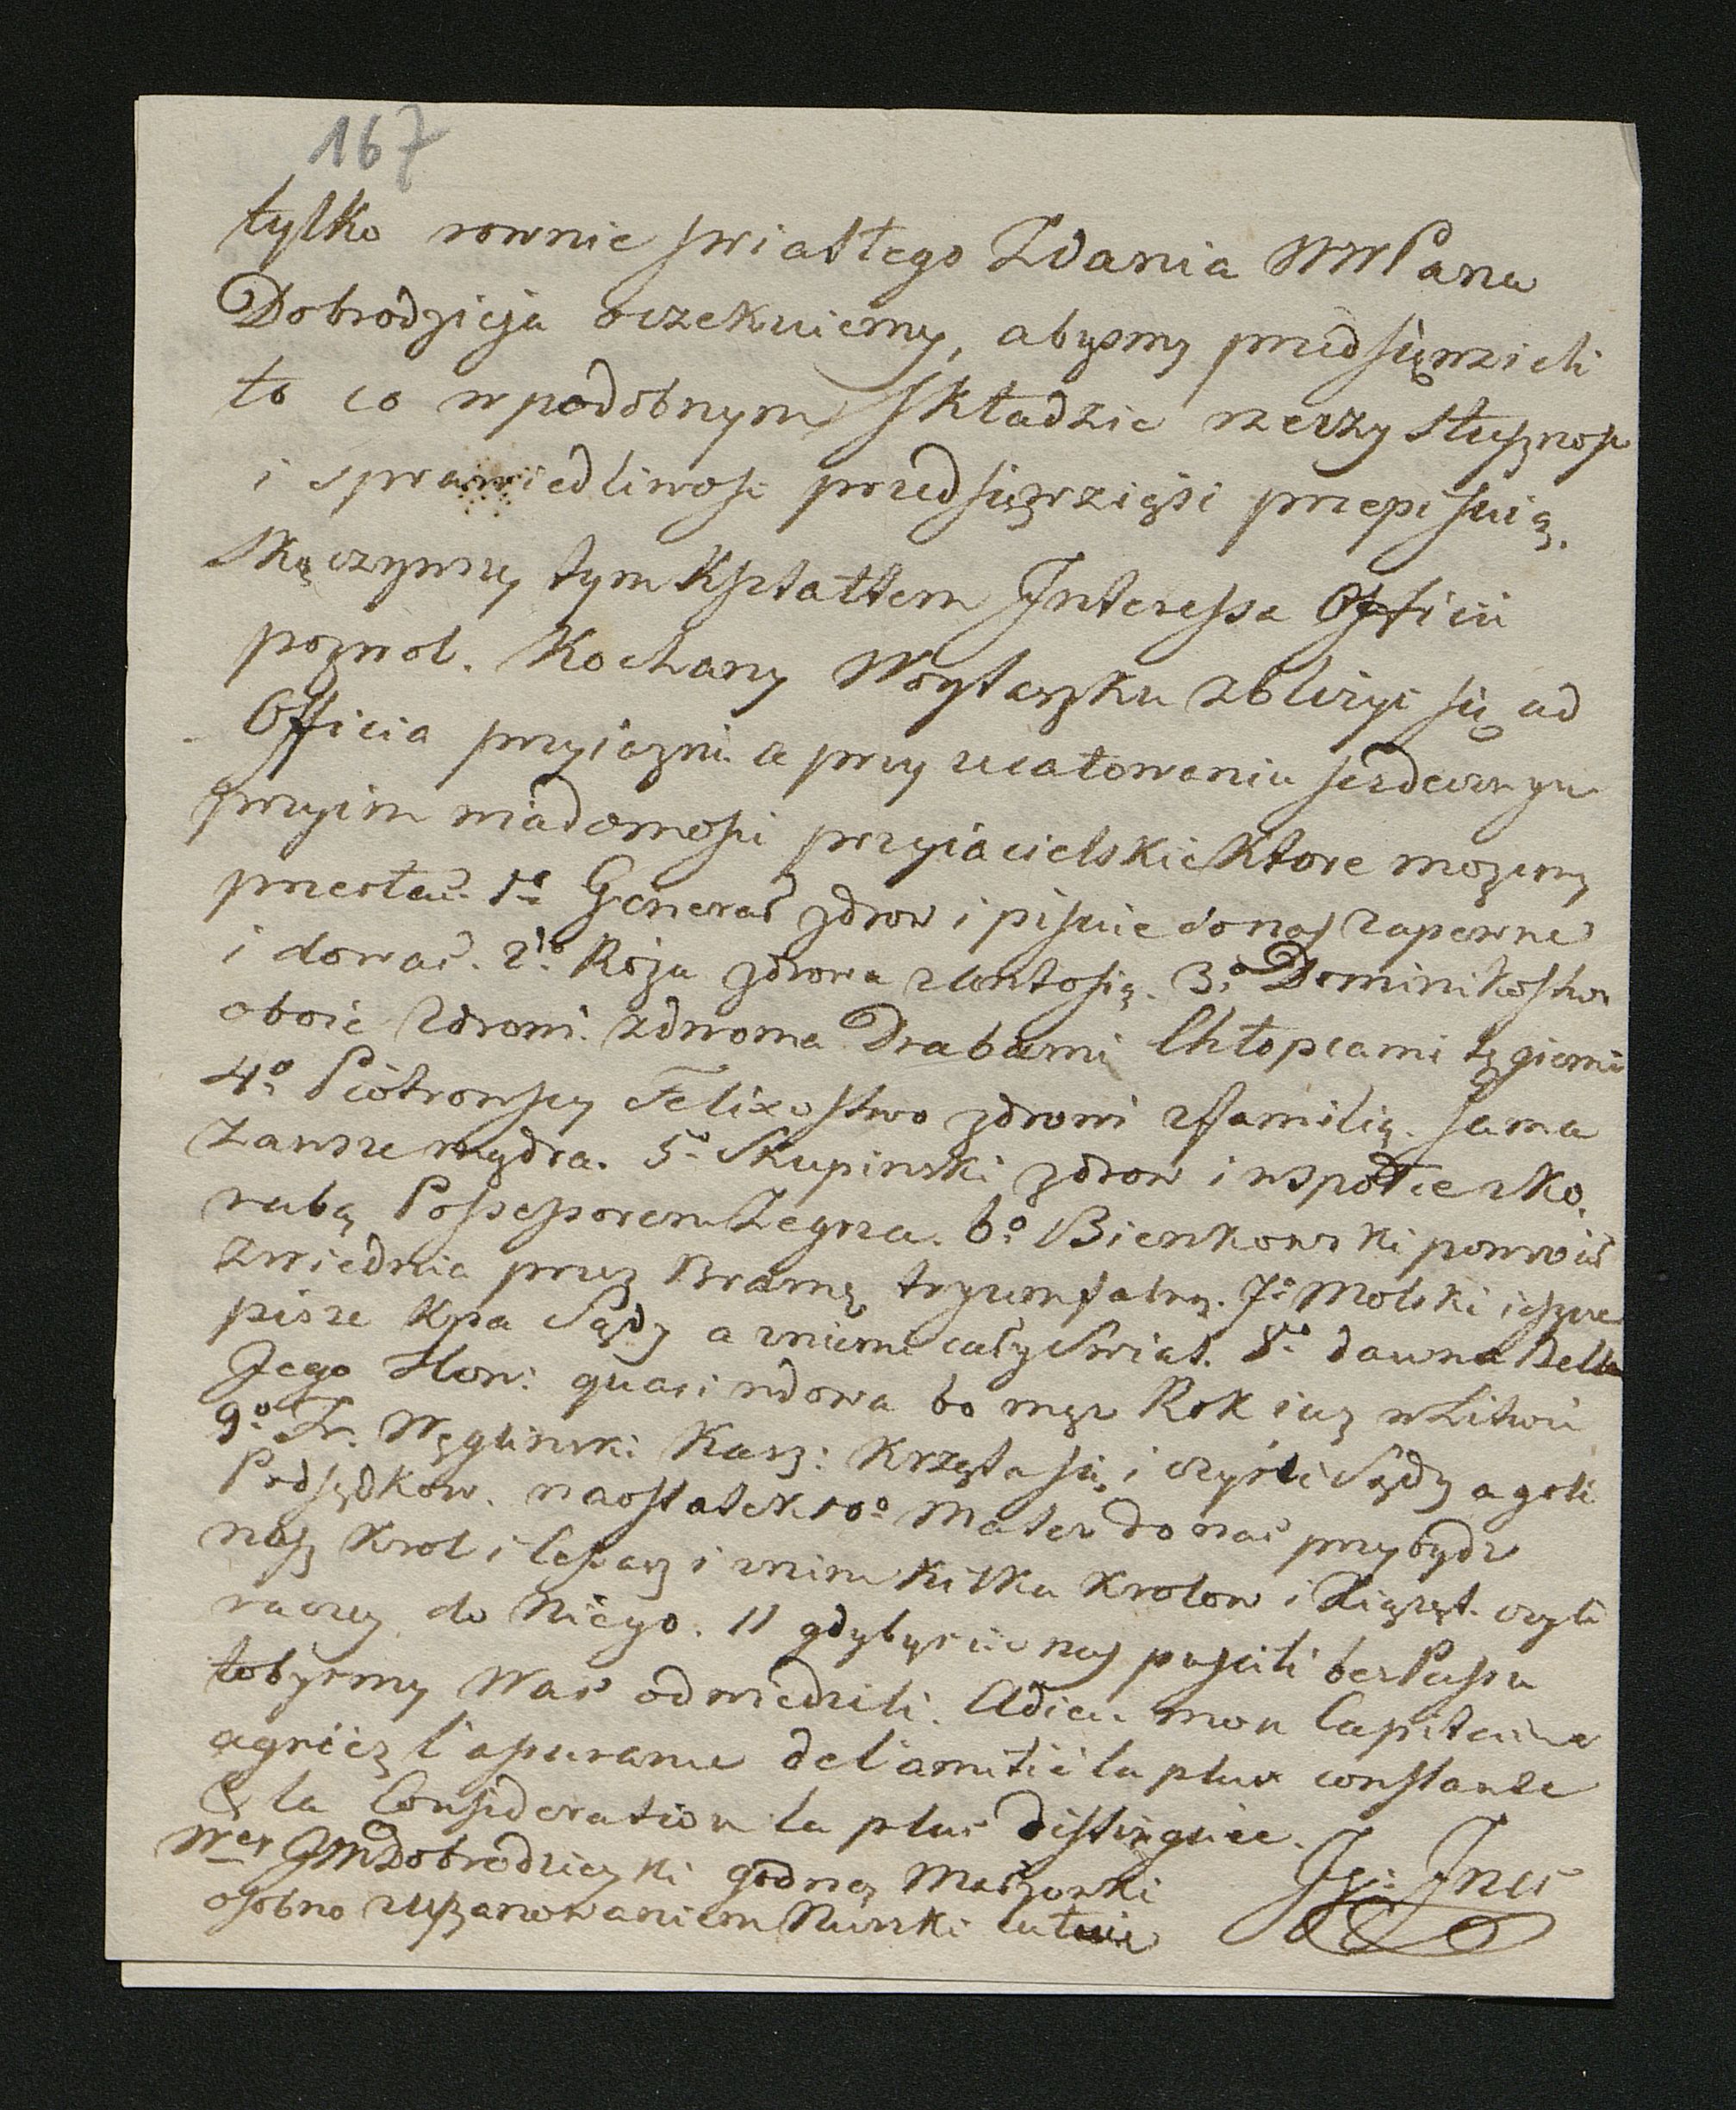 167
tylko rownie swiatłego Zdania WWPana
Dobrodzieja oczekuiemy, abysmy przedsięwzieli
to co w podobnym składzie rzeczy słusznosc
i sprawiedliwosc przedsięwziąsc przepisuią.
Skączywszy tym kształtem Interessa Officii
pozwol. Kochany Woytaszku zbliżyc się ad
Officia przyiazni a przy ucałowaniu serdecznym
przyim wiadomosci przyiacielskie ktore mozemy
przesłac. 1o Generał zdrow i pisuie do nas zapewne
i do was. 2do Róza zdrowa z Antosią. 3o Dominikostwo
oboie zdrowi. z dwoma Drabami Chłopcami tęgiemi
4o Piotrowscy Felixostwo zdrowi z familią. sama
zawsze mądra. 5o Skupinski zdrow i wspołie z ko.
rabą Possessorem Zegrza. 6o Bienkowski powrocił
z Wiednia przez Bramę tryumfalną. 7o Molski ieszcze
pisze Kpa Sądzy a z niemi cały Swiat. 8o dawna Bella
Jego Hon: quasi wdowa bo mąz Rok iuz w Litwie
9o Fr. Węglinski Kasz: krząta się, i czysci Sądy a goli
Podsędkow. naostatek 10o Mater do nas przybędz
nasz Krol i Cesarz i z nim kilku Krolow i Xiążąt. czyli
raczey do Niego. 11 gdybyscie nas puscili bez Passu
tobysmy Was odwiedzili. Adieu mon Capitaine
agréez l'assurance de l'amitié la plus constante
& la Consideration la plus distinguée.
Wey JmDobrodzieyki godney Małzonki
osobno z uszanowaniem Nuzki całuie